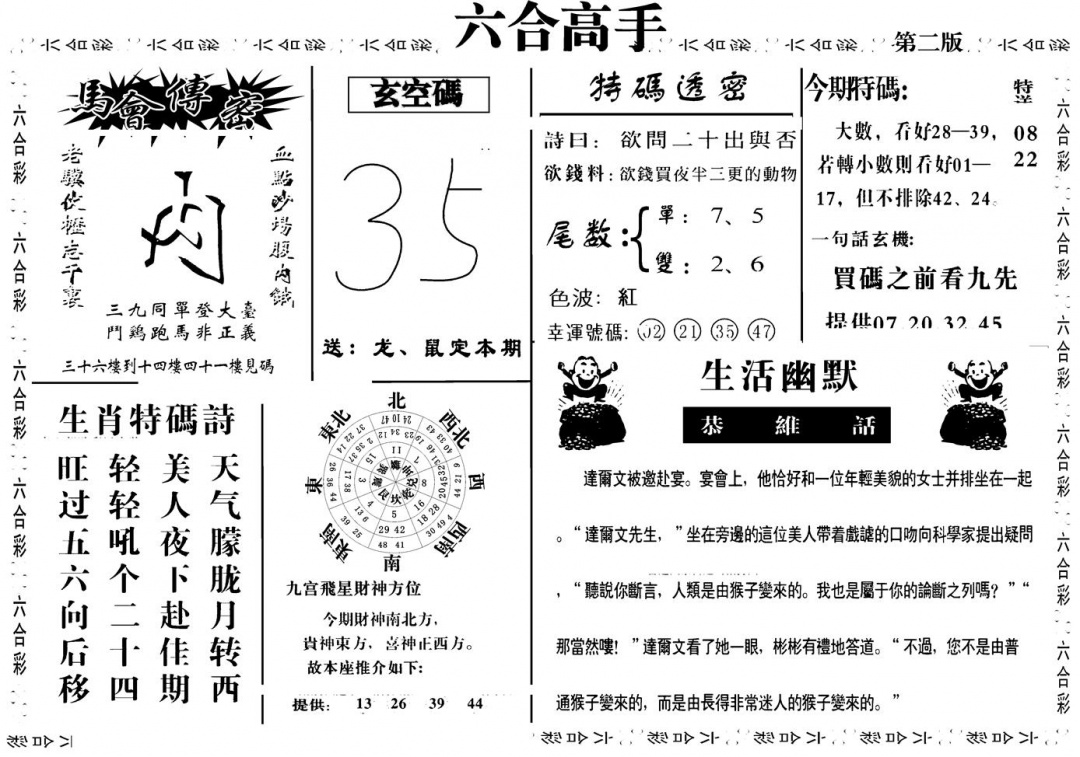 六合高手
第二版
馬會傳密
老驥伏櫪志千裏
血點沙場腹內鐵
三九同單登大臺
門鷄跑馬非正義
三十六樓到十四樓四十一樓見碼
玄空碼
35
送：龙、鼠定本期
特碼透密
詩曰：欲問二十出與否
欲錢料：欲錢買夜半三更的動物
尾数：
單：7、5
雙：2、6
色波：紅
幸運號碼：02 21 35 47
今期特碼:
大數，看好28—39,
若轉小數則看好01—
17，但不排除42、24。
特
送
08
22
一句話玄機:
買碼之前看九先
提供07.20.32.45
生肖特碼詩
天气朦胧月转西
美人夜下赴佳期
轻轻吼个二十四
旺过五六向后移
北
西北
西
西南
南
東南
東
東北
九宮飛星財神方位
今期財神南北方，
貴神東方，喜神正西方。
故本座推介如下:
提供： 13 26 39 44
生活幽默
恭維話
達爾文被邀赴宴。宴會上，他恰好和一位年輕美貌的女士并排坐在一起
。“達爾文先生，”坐在旁邊的這位美人帶着戲謔的口吻向科學家提出疑問
，“聽說你斷言，人類是由猴子變來的。我也是屬于你的論斷之列嗎？”“
那當然嘍！”達爾文看了她一眼，彬彬有禮地答道。“不過，您不是由普
通猴子變來的，而是由長得非常迷人的猴子變來的。”
六合彩